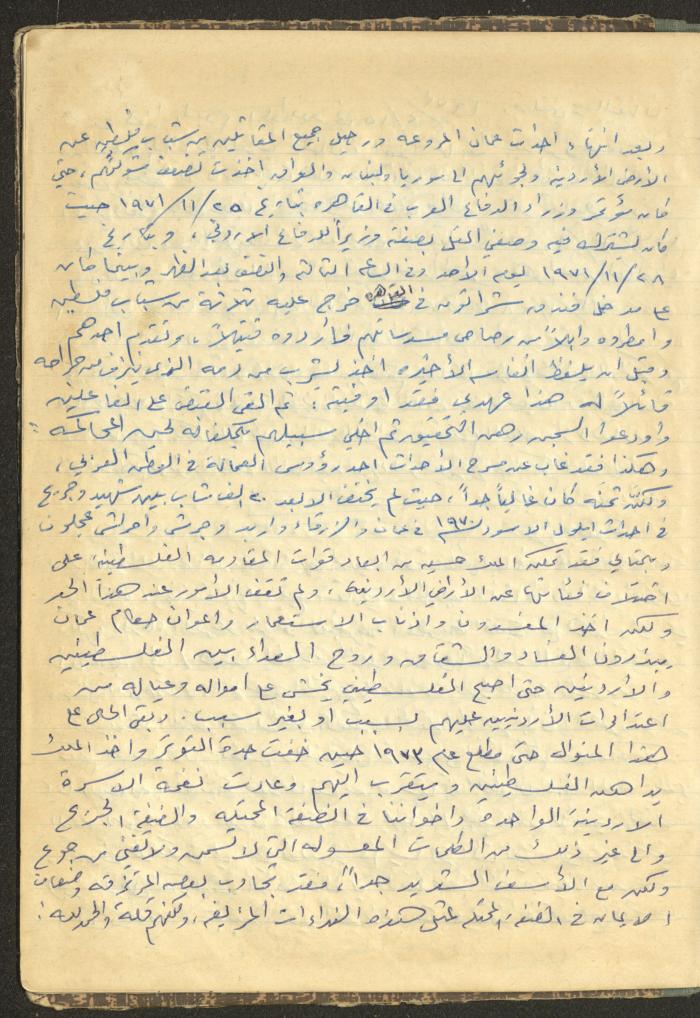 وبعد انتهاء احداث عمان المروعه ورحيل جميع المقاتلين من شباب فلسطين عن
الأرض الأردنية ولجوئهم الى سوريا ولبنان والعراق اخذت تضعف شوكتهم، حتى
كان مؤتمر وزراء الدفاع العرب في القاهره بتاريخ ٢٥/١١/١٩٧١ حيث
كان يشترك فيه وصفي التل بصفته وزيراً للدفاع الاردني، وبتاريخ
٢٨/١١/١٩٧١ يوم الأحد وفي الساعه الثالثه والنصف بعد الظهر وبينما كان
على مدخل فندق شيراتون في القاهره خرج عليه ثلاثة من شباب فلسطين
وامطروه وابلاً من رصاص مسدساتهم فأردوه قتيلاً، وتقدم احدهم
وقبل ان يلفظ انفاسه الأخيره اخذ يشرب من دمه الذي ينزف من جراحه
قائلاً له هذا عهدي فقد اوفيته: ثم القي القبض على الفاعلين
وأودعوا السجن رهن التحقيق ثم اخلي سبيلهم بكفاله لحين المحاكمه:
وهكذا فقد غاب عن مسرح الأحداث احد رؤوس العمالة في الوطن العربي،
ولكن ثمنه كان غالياً جداً، حيث لم يختف الا بعد ٢٠ الف شاب بين شهيد وجريح
في احداث ايلول الاسود ١٩٧٠ في عمان والزرقاء واربد وجرش واحراش عجلون
وبالتالي فقد تمكن الملك حسين من ابعاد قوات المقاومه الفلسطينية على
اختلاف فئاتها عن الأراضي الأردنيه، ولم تقف الأمور عند هذا الحد
ولكن اخذ المفسدون واذناب الاستعمار واعوان حكام عمان
يبذرون الفساد والشقاق وروح العداء بين الفلسطينيين
والأردنيين حتى اصبح الفلسطيني يخشى على امواله وعياله من
اعتداءات الأردنيين عليهم بسبب او بغير سبب. وبقي الحال على
هذا المنوال حتى مطلع عام ١٩٧٣ حين خفت حدة التوتر واخذ الملك
يداهن الفلسطينيين ويتقرب اليهم وعادت نغمة الاسرة
الاردنية الواحدة واخواننا في الضفة المحتله والضفة الجريح
والى غير ذلك من الكلمات المعسوله التي لا تسمن ولا تغني من جوع
ولكن مع الأسف الشديد جداً، فقد تجاوب بعض المرتزقه وضعاف
الايمان في الضفة المحتله لمثل هذه النداءات المزيفه، ولكنهم قلة والحمد لله: